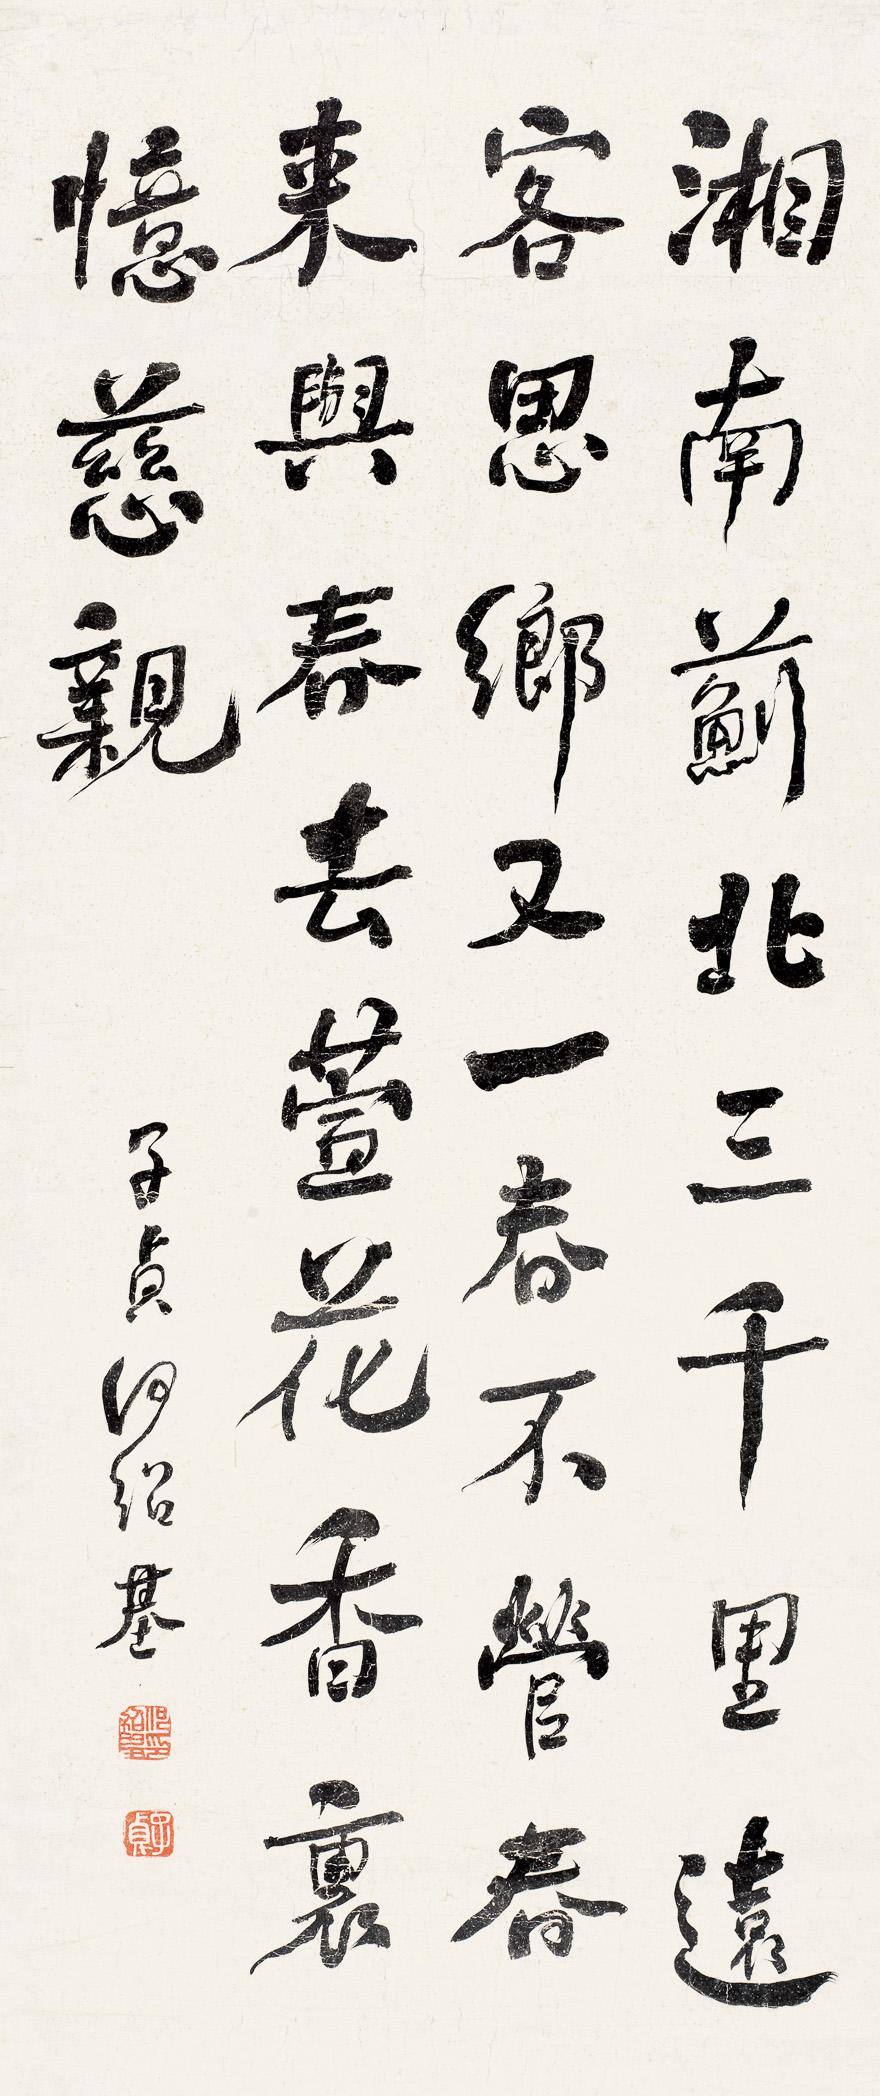 湘南薊北三千里遠
客思鄉又一春不營春
來與春去萱花香裏
憶慈親
子貞何紹基
何紹基印
子貞